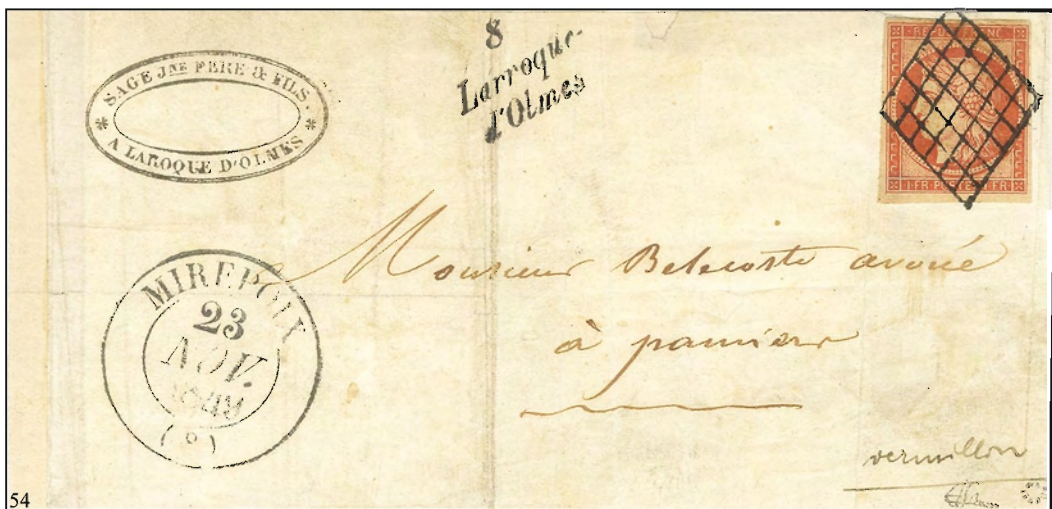 SAGE JNE PERE & FILS.
* A LAROQUE D'OLMES *
8
Larroque-
d'Olmes
REPUB FRANC
1 FR POSTE 1 FR
MIREPOIX
23
NOV.
(8)
Monsieur Belecoste avoué
à pamiers
vermillon
54